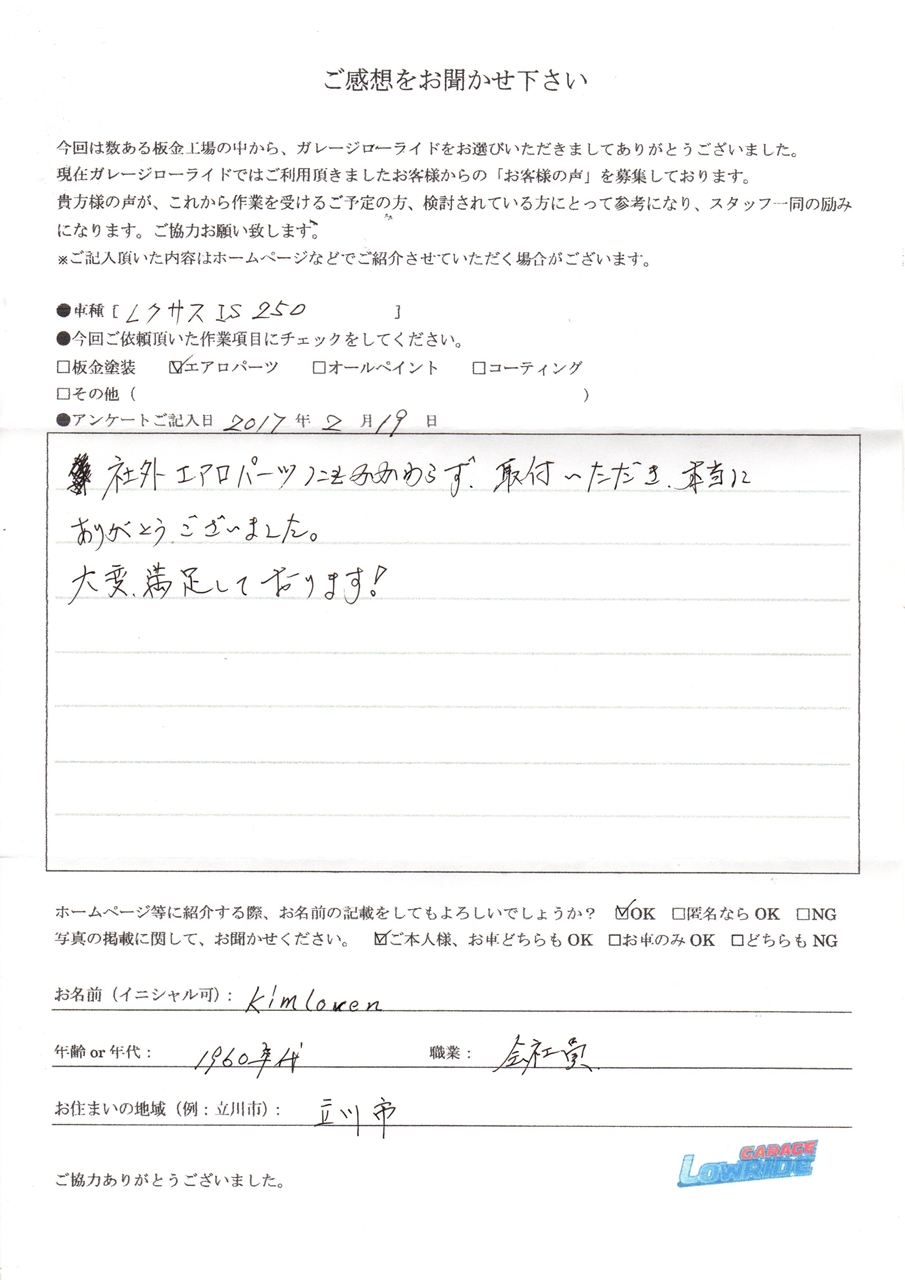 ご感想をお聞かせ下さい
今回は数ある板金工場の中から、ガレージローライドをお選びいただきましてありがとうございました。
現在ガレージローライドではご利用頂きましたお客様からの「お客様の声」を募集しております。
貴方様の声が、これから作業を受けるご予定の方、検討されている方にとって参考になり、スタッフ一同の励み
になります。ご協力お願い致します。
※ご記入頂いた内容はホームページなどでご紹介させていただく場合がございます。
●車種 [ レクサス IS 250 ]
●今回ご依頼頂いた作業項目にチェックをしてください。
□板金塗装 ☑エアロパーツ □オールペイント □コーティング
□その他（ ）
●アンケートご記入日 2017 年 2 月 19 日
社外エアロパーツにもかかわらず、取付いただき、本当に
ありがとうございました。
大変、満足しております！
ホームページ等に紹介する際、お名前の記載をしてもよろしいでしょうか？ ☑OK □匿名なら OK □NG
写真の掲載に関して、お聞かせください。 ☑ご本人様、お車どちらも OK □お車のみ OK □どちらも NG
お名前（イニシャル可）：
年齢 or 年代： 1960年代 職業： 会社員
お住まいの地域（例：立川市）： 立川市
ご協力ありがとうございました。
GARAGE
LOWRIDE